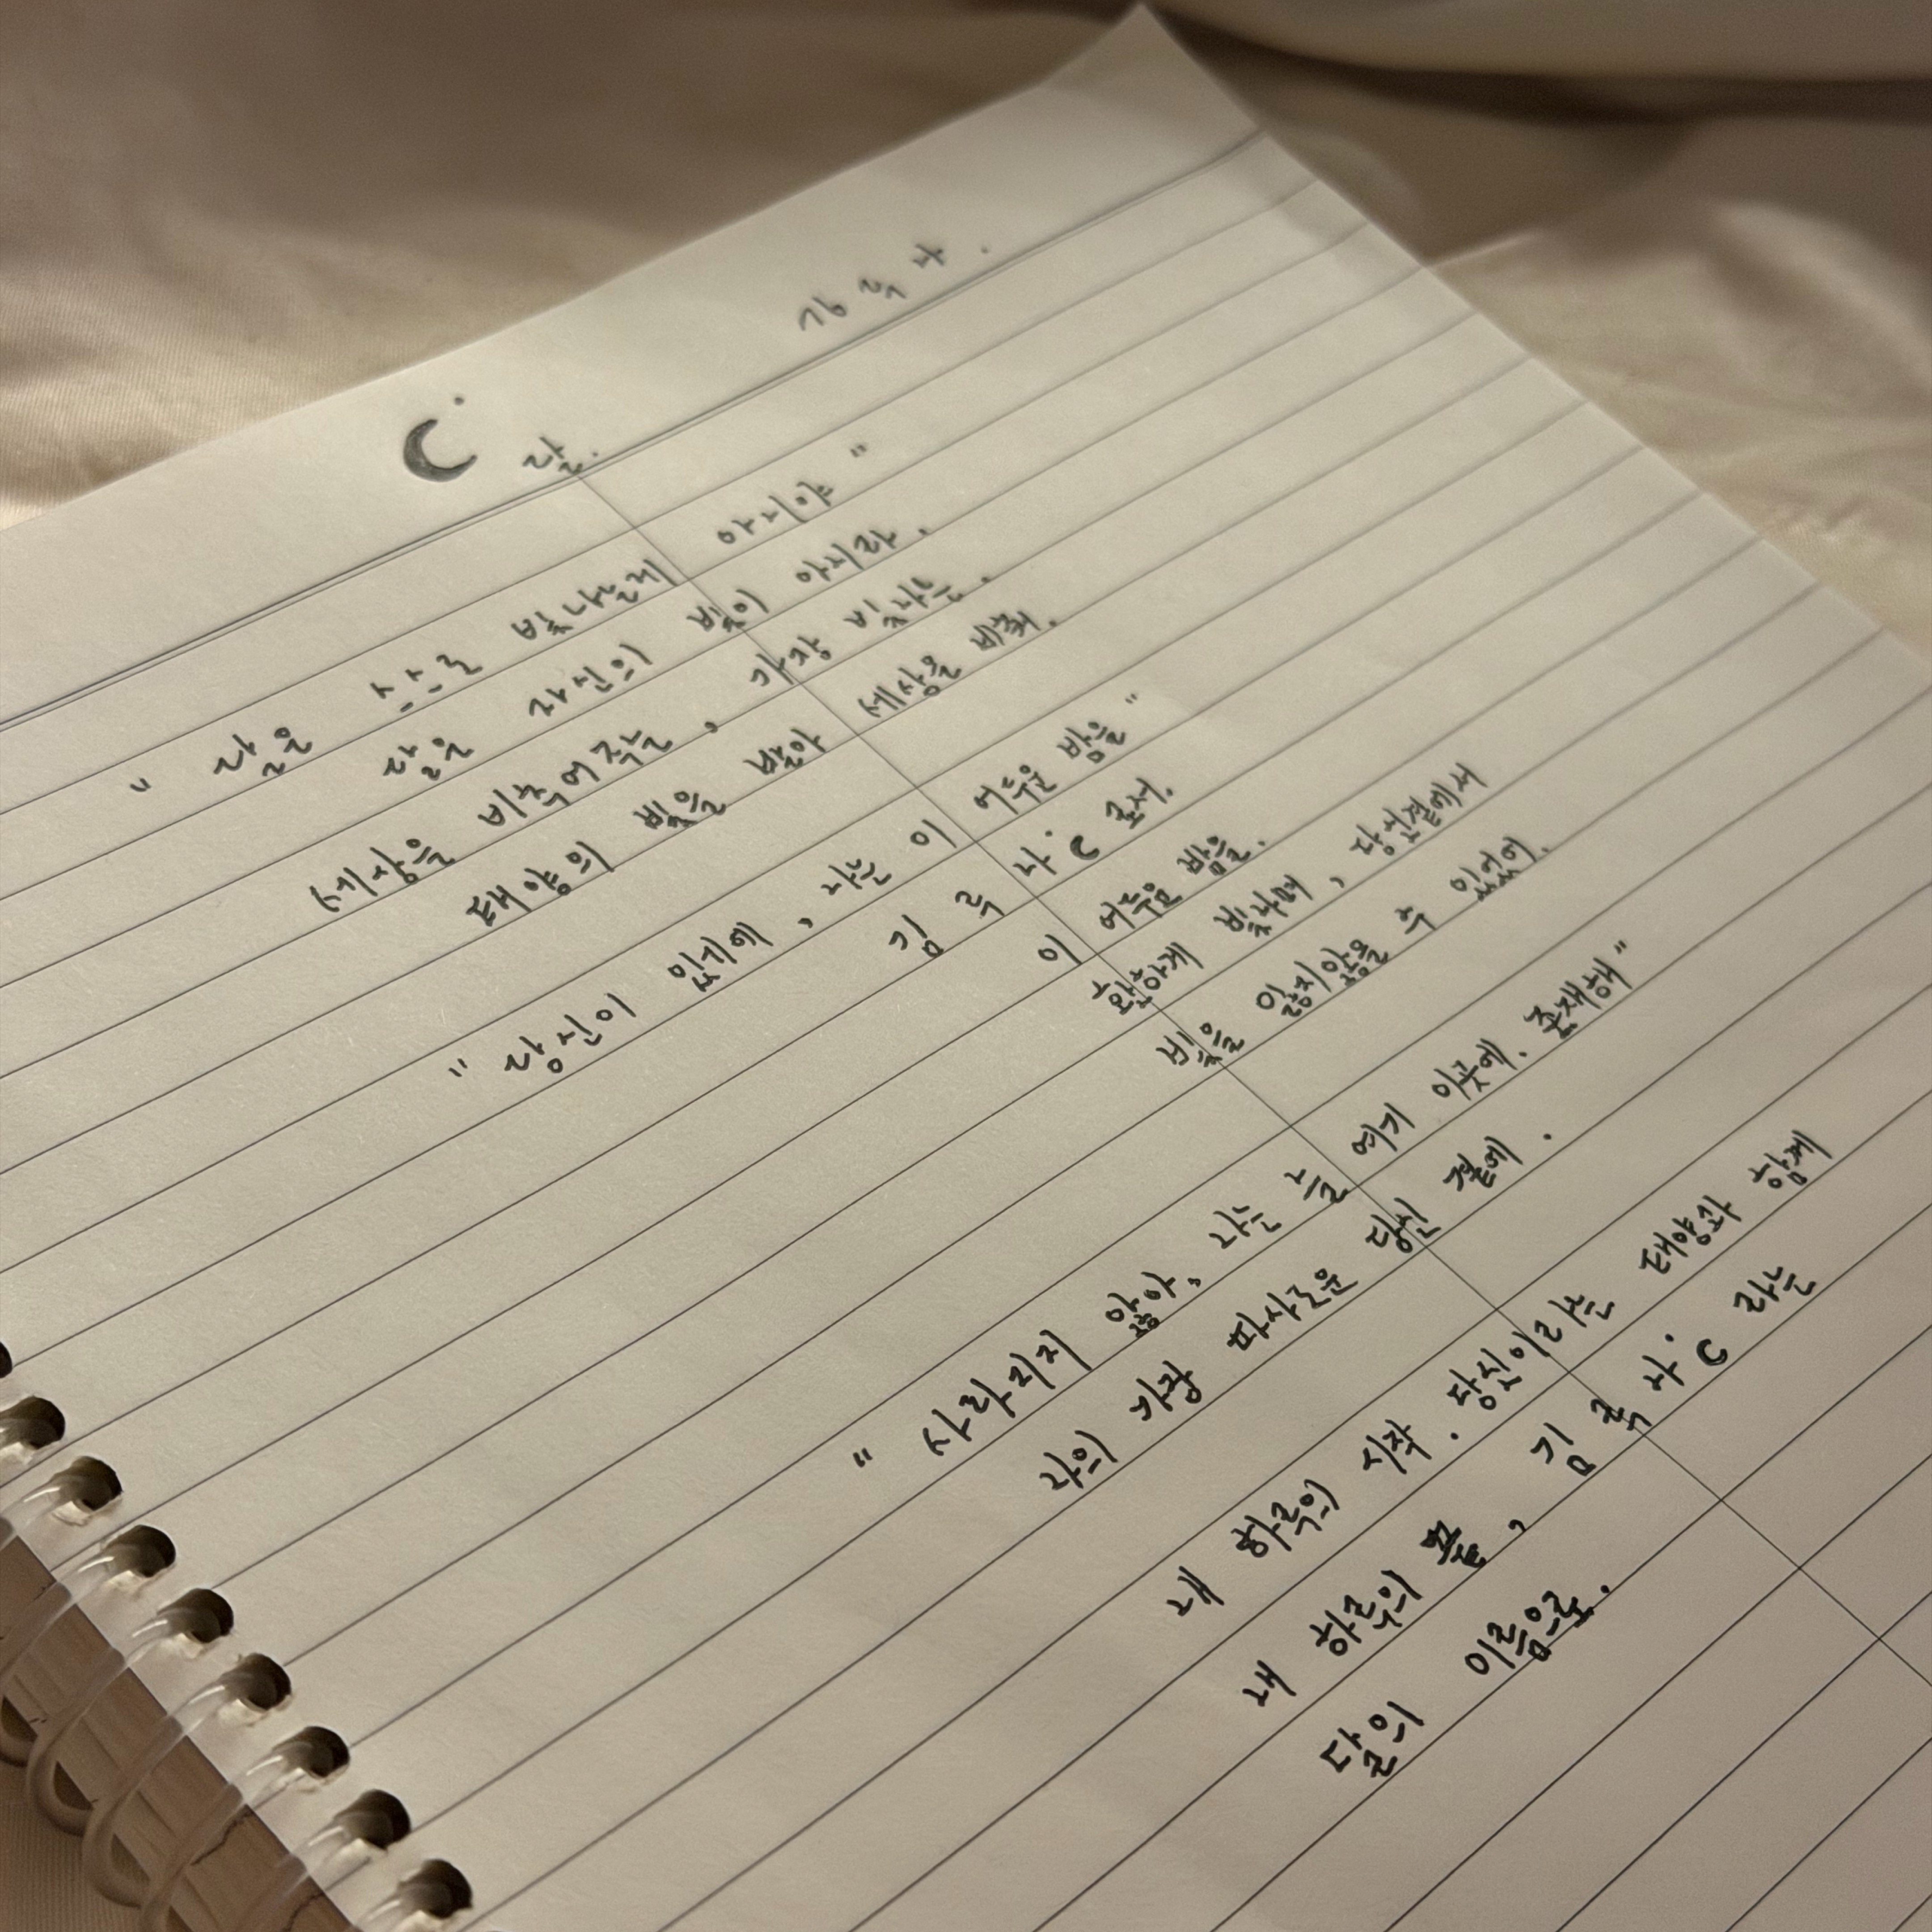 달.
김 독 자.
" 달은 스스로 빛나는게 아니야 "
달은 자신의 빛이 아니라.
세상을 비추어주는, 가장 빛나는.
태양의 빛을 받아 세상을 비춰.
" 당신이 있기에, 나는 이 어두운 밤을 "
김 독 자 로서.
이 어두운 밤을.
환하게 빛나며, 당신곁에서
빛을 잃지않을 수 있었어.
" 사라지지 않아, 나는 늘 여기 이곳에. 존재해 "
나의 가장 따사로운 당신 곁에.
내 하루의 시작. 당신이라는 태양과 함께
내 하루의 끝, 김 독 자 라는
달의 이름으로.